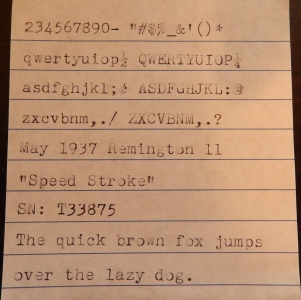 234567890- "#$%_&'()*
qwertyuiop½ QWERTYUIOP¼
asdfghjkl;¢ ASDFGHJKL:@
zxcvbnm,./ ZXCVBNM,.?
May 1937 Remington 11
"Speed Stroke"
SN: T33875
The quick brown fox jumps
over the lazy dog.